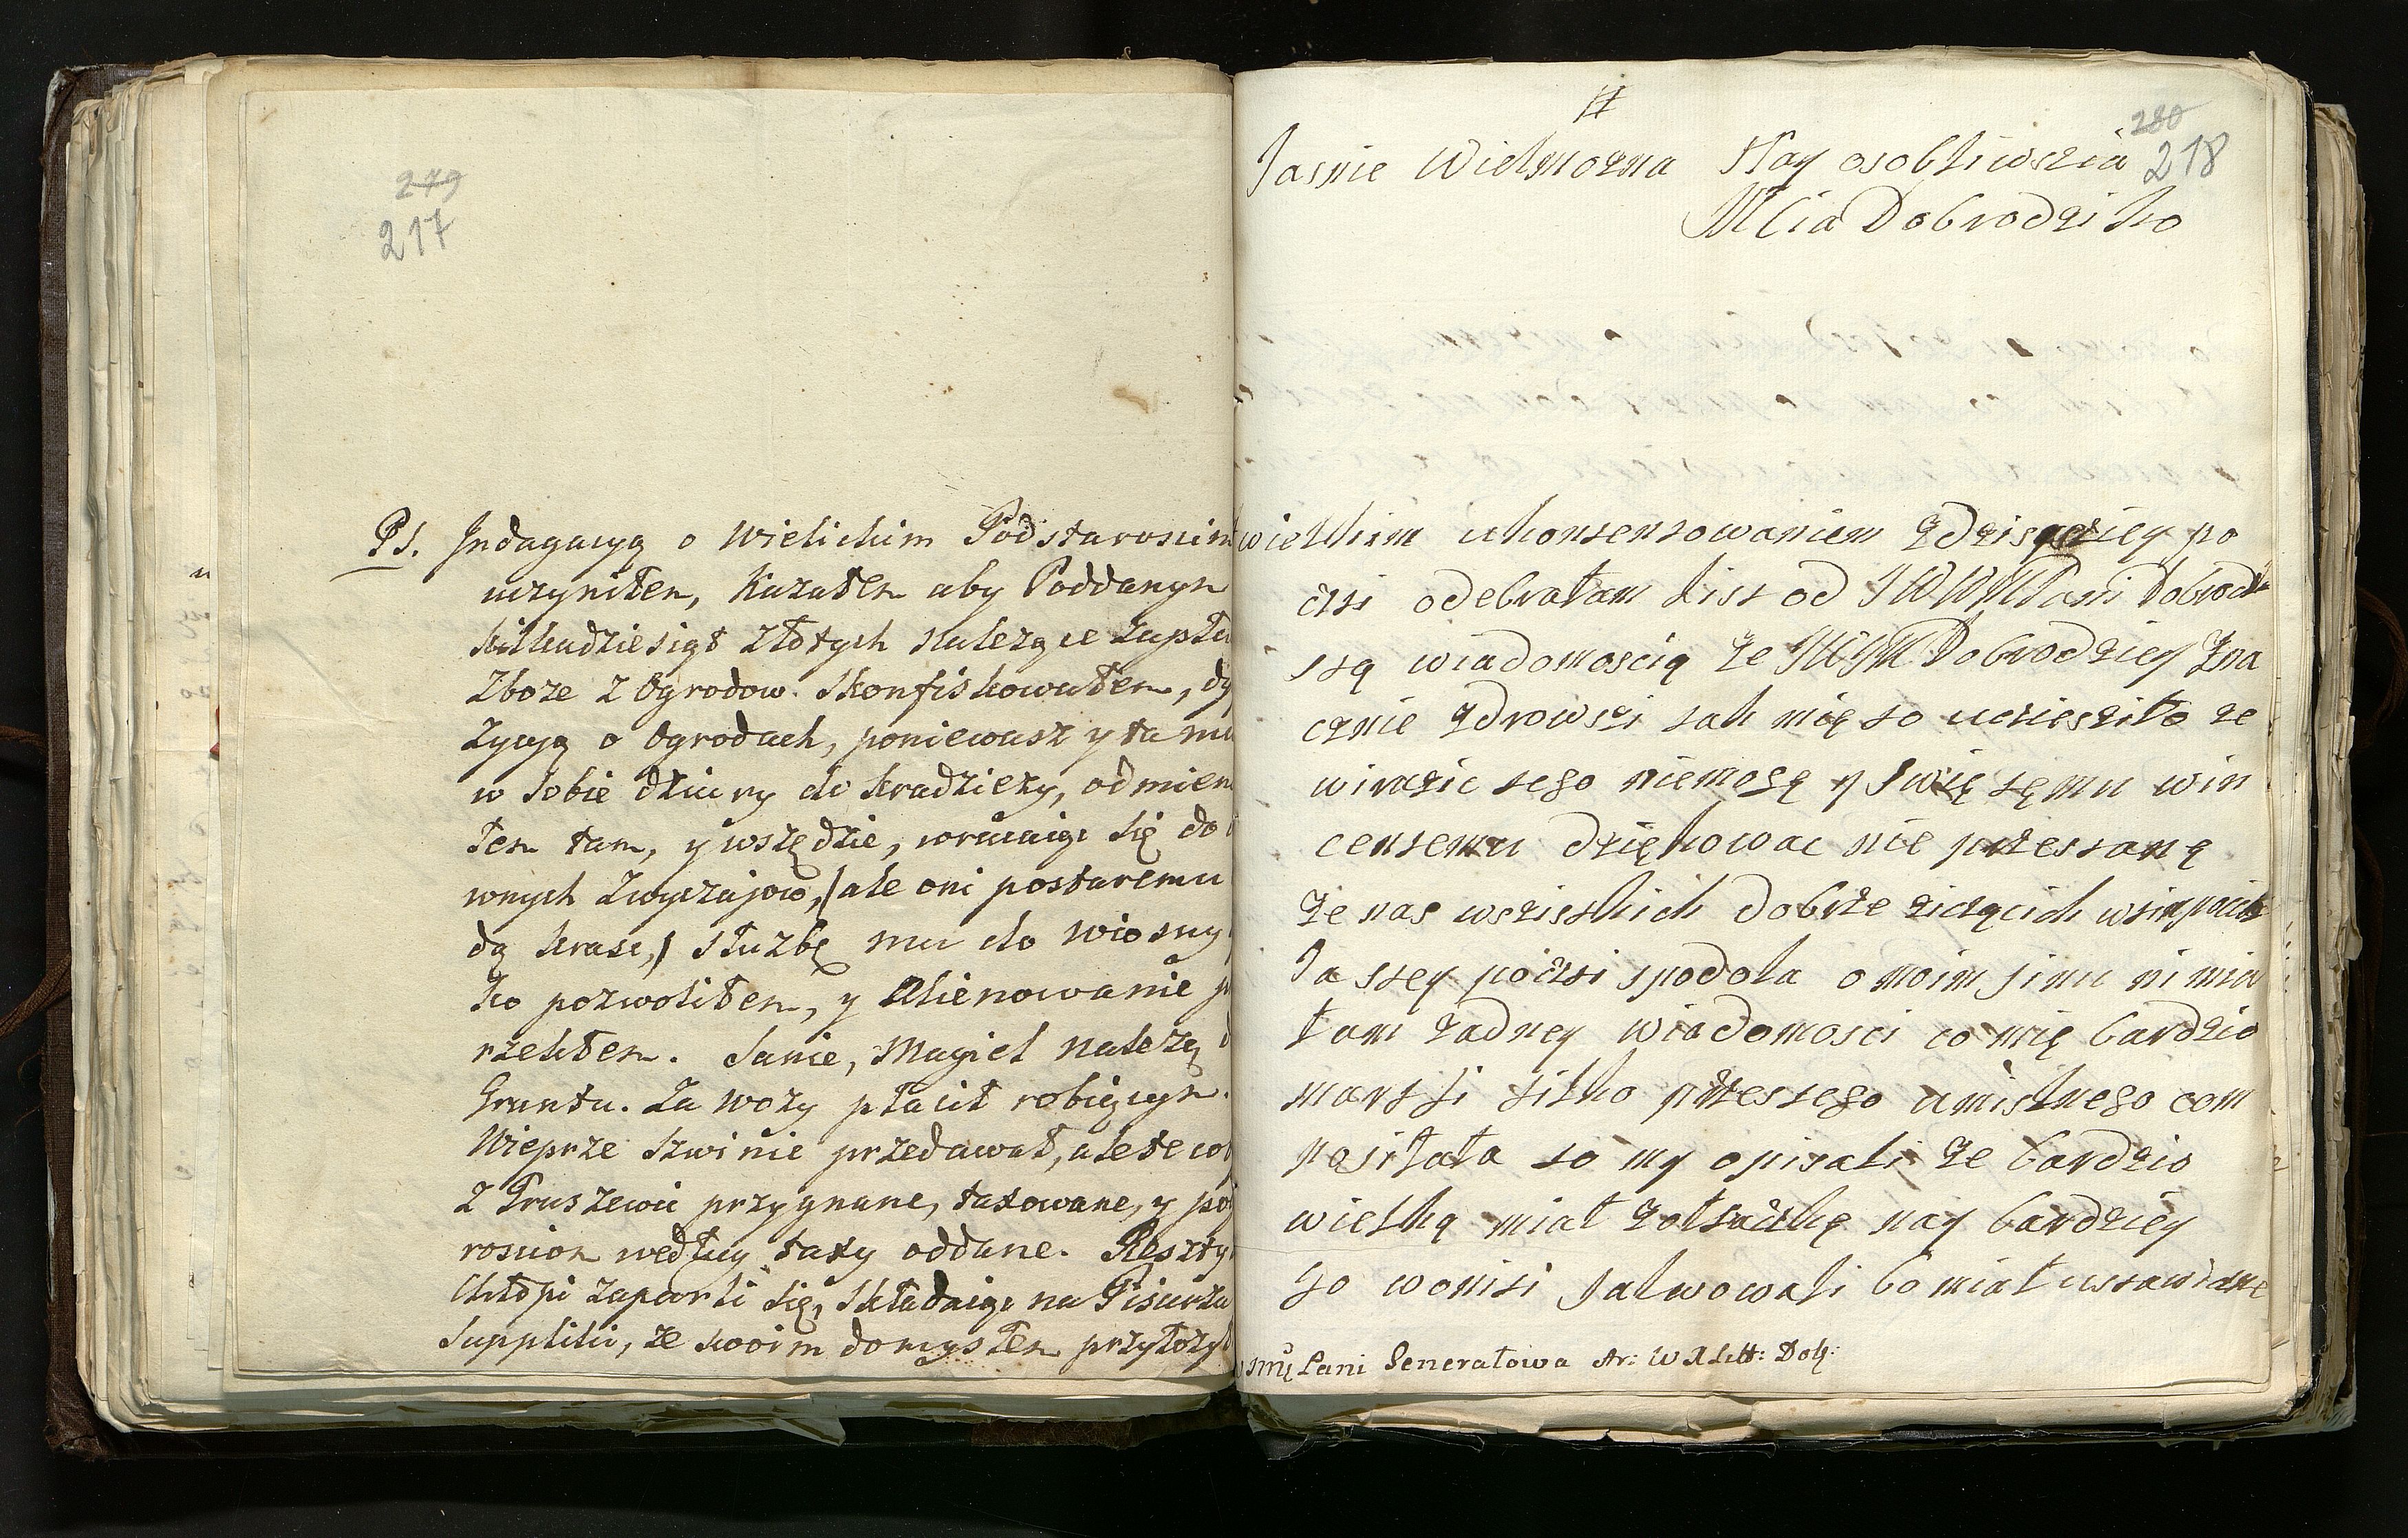 279
217
Ps. Indagacyą o Wielickim Podstaroscim
uczyniłem, Kazałem aby Poddanym
kilkadziesiąt Złotych należące zapła
Zboże z Ogrodow skonfiskowałem, dy
zycyą o Ogrodach, poniewasz y ta mu
w sobie dziury do kradzieży, odmieni
łem tam, y wszędzie, wracaiąc się do
wnych Zwyczajow, (ale oni postaremu
dą kraść,) Służbę mu do wiosny
ko pozwoliłem, y Alienowanie
rzekłem. Sanie, Magiel należą
Gruntu. Za wozy płacił robiącym.
Wieprze Szwinie przedawał, ale te co
z Pruszewic przygnane, taxowane, y po
roscion według taxy oddane. Reszty
Chłopi zaparli się, składaiąc na Pisarza
Suppliki, że swoim domysłem przyłozył
#
280
218
Jasnie Wielmozna Nay osobliwszia
MCia Dobrodziko
wielkim ukontentowaniem zdzisęziey po
czti odebrałam List od JWWMPani Dobrod
stą wiadomoscią że JWJM Dobrodziey zna
cznie zdrowszi tak mię to ucziesziło ze
wirazic tego niemogę y Swię tęmu win
centemu dziękowac nie przestanę
że nas wszistkich dobrze ziczących
Ja stey poczti spodola o moim sinu ni mia
łam żadney wiadomosci co mię bardzio
martfi tilko przestego umislnego com
posiłała to my opisali że bardzio
wielką miał zołtaczkę nay bardziey
go womiti salwowali bo miał ustawiczne
Pani Generałowa Ar: W X Litt: Dob: